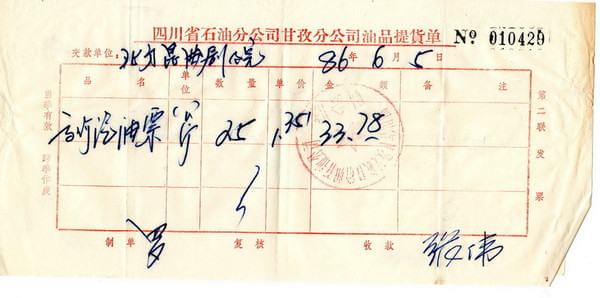 四川省石油分公司甘孜分公司油品提货单 № 010429
交款单位：北方昆曲剧院 86年6月5日
品名 单位 数量 单价 金额 备注
汽油票 公斤 25 1.351 33.78
当年有效 跨年作废
第二联 发票
制单 罗 复核 收款 张伟